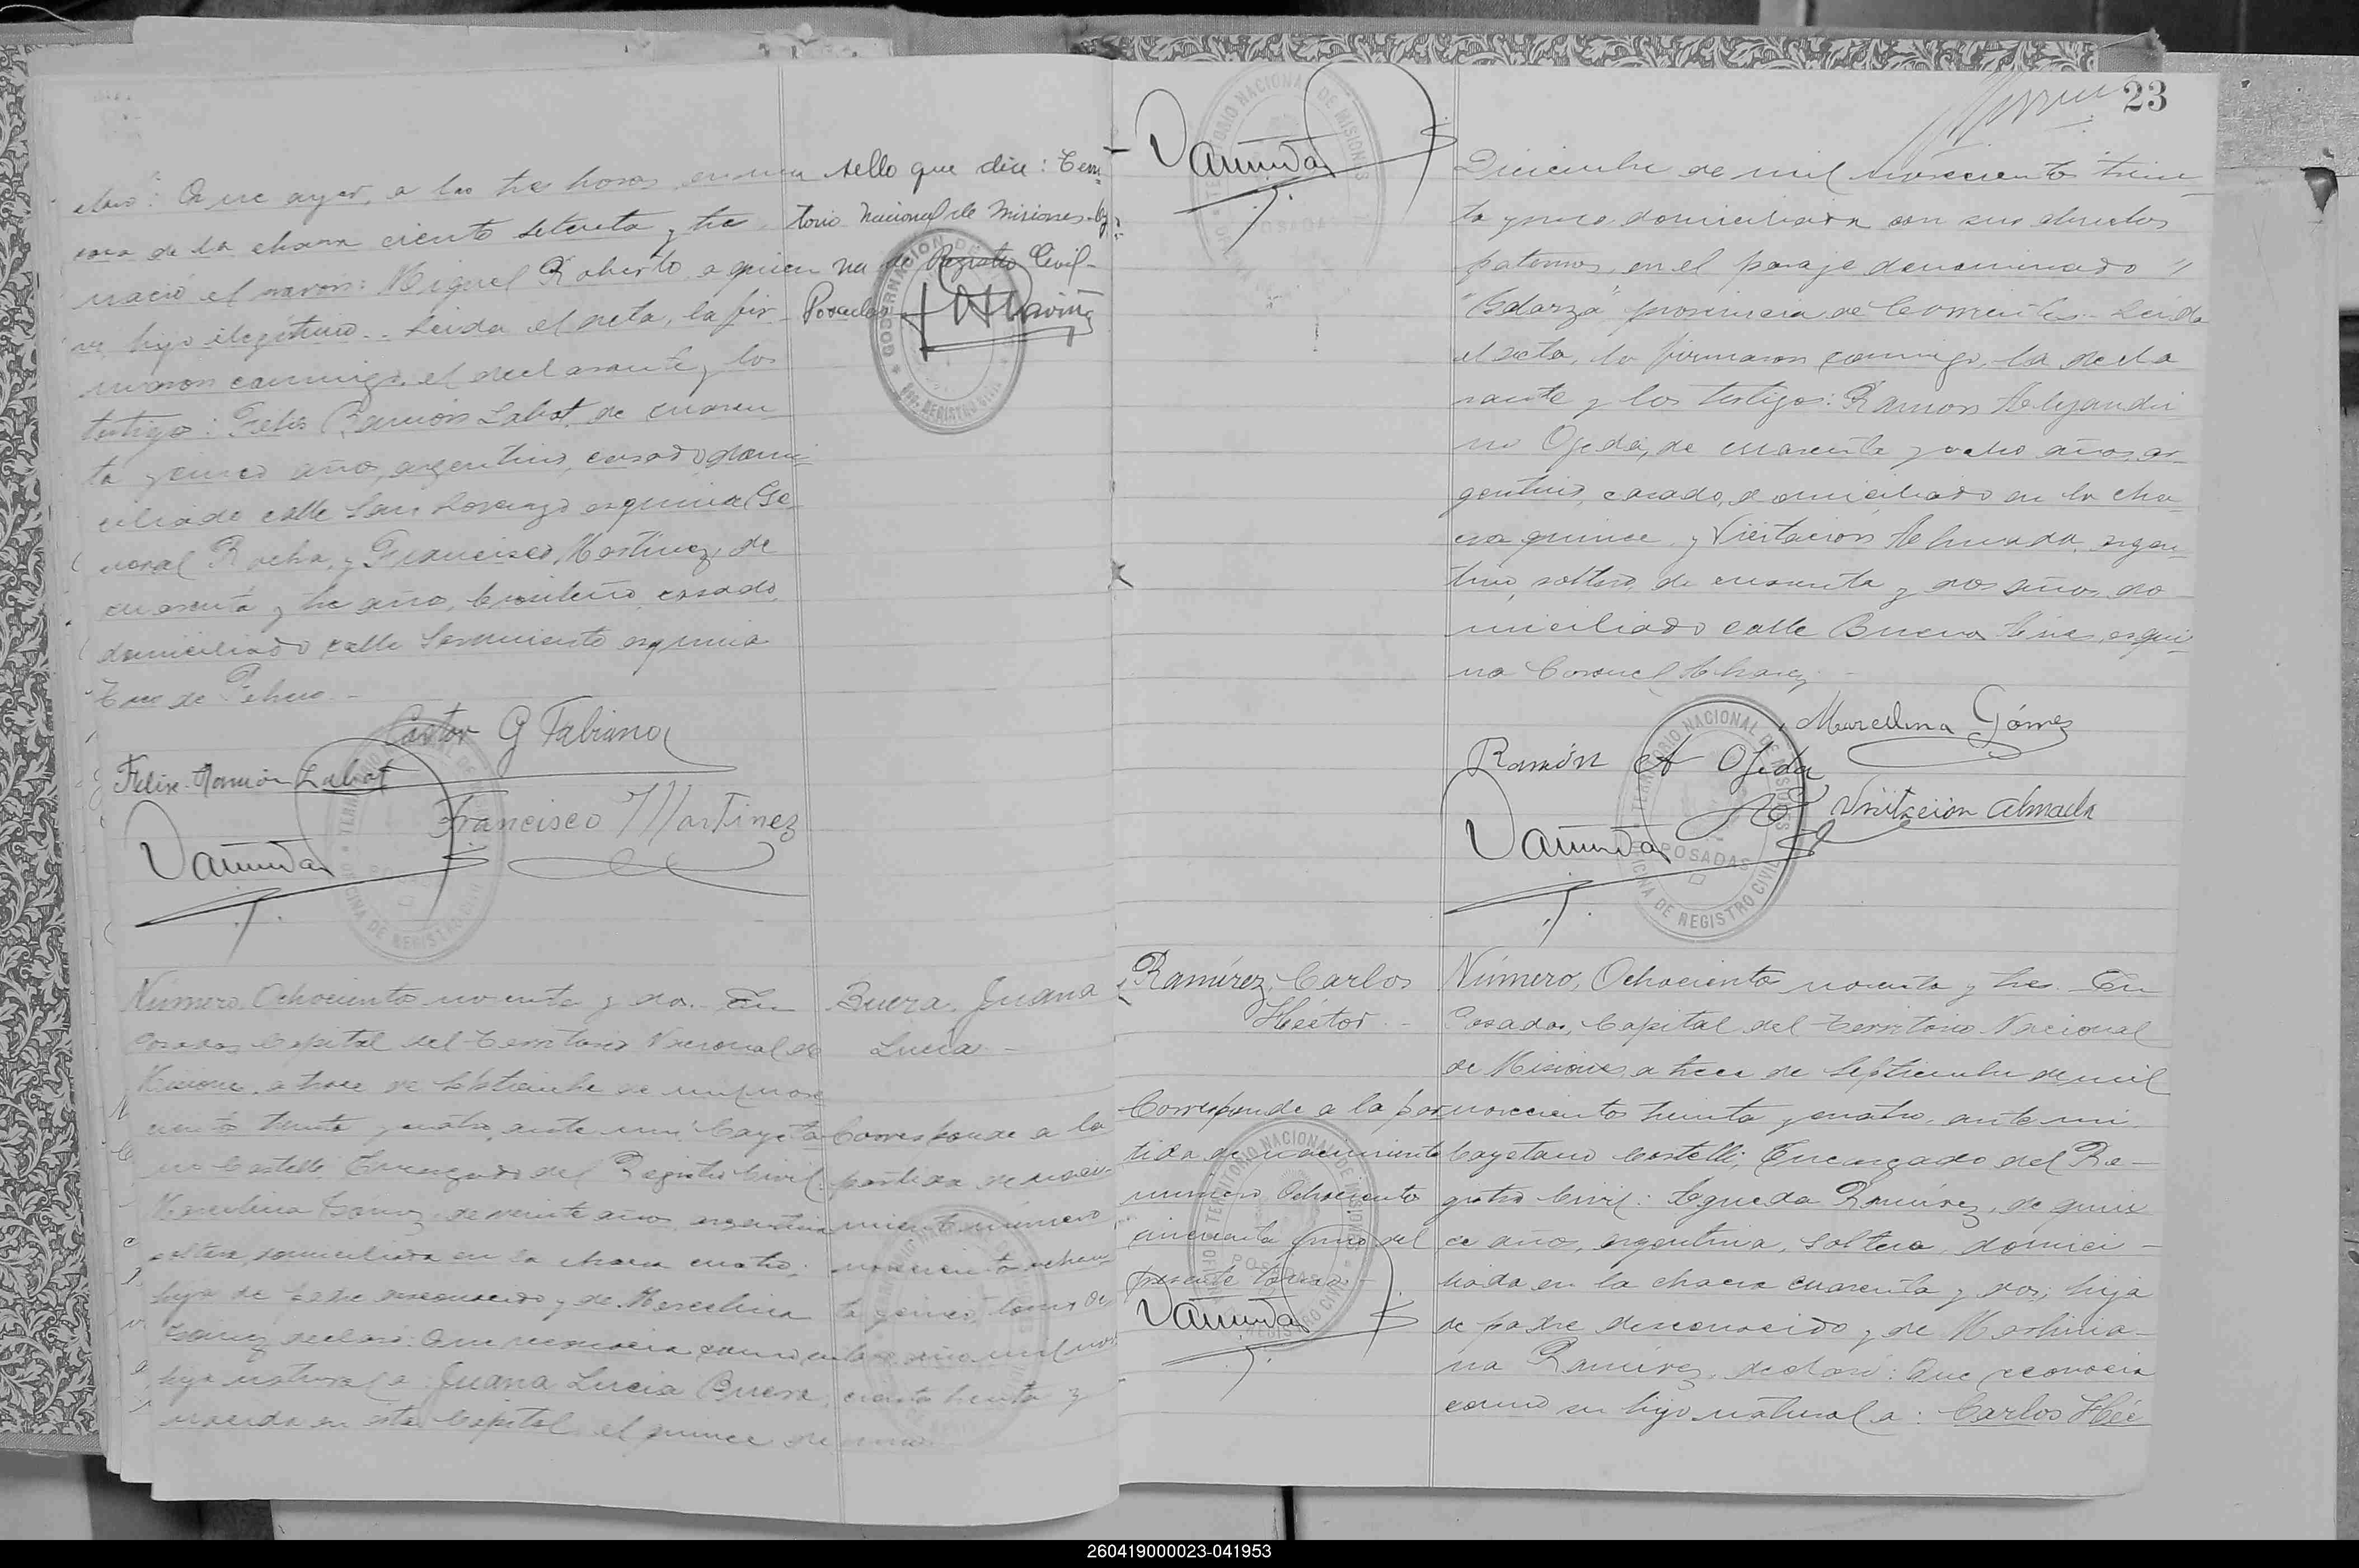 claró: Que ayer, a las tres horas, en una
casa de la chacra ciento setenta y tres
nació el varón: Miguel Roberto, a quien
hijo ilegítimo.- Leida el acta, la fir-
maron conmigo, el declarante y los
testigos: Felix Ramón Labat, de cuaren
ta y cinco años, argentino, casado, domi-
ciliado calle San Lorenzo esquina Ge-
neral Rocha, y Francisco Martinez, de
cuarenta y tres años, brasileño, casado,
domiciliado calle Sarmiento esquina
Tres de Febrero.-
Castor G Fabiano
Felix Ramón Labat
Francisco Martinez
sello que dice: Terri-
torio Nacional de Misiones
na de Registro Civil-
Posadas
GOBERNACION DE
Número Ochocientos noventa y dos. En
Posadas Capital del Territorio Nacional de
Misiones, a trece de Septiembre de mil nove
cientos treinta y cuatro, ante mi: Cayeta
no Castelli, Encargado del Registro Civil:
Marcelina Gómez, de veinte años, argentina
soltera, domiciliada en la chacra cuatro;
hija de padre desconocido y de Marcelina
Gómez, declaró: Que reconocia como su
hija natural a: Juana Lucia Buera,
nacida en esta Capital, el quince de
Buera, Juana
Lucía.-
Corresponde a la
partida de naci-
miento número
novecientos ochen-
ta y cinco, tomo
mil no
cientos treinta y
uno.
23
Diciembre de mil novecientos trein-
ta y uno domiciliada con sus abuelos
paternos, en el paraje denominado
provincia de Corrientes.- Leida
el acta, la firmaron conmigo, la decla
rante y los testigos: Ramon Alejandri
no Ojeda, de cuarenta y ocho años, ar-
gentino, casado, domiciliado en la cha-
cra quince, y Visitacion Almada, argen-
tino, soltero, de cuarenta y dos años, do-
miciliado calle Buenos Aires, esqui-
na Coronel Alvarez.-
Marcelina Gómez
Ramón A Ojeda
Visitacion Almada
TERRITORIO NACIONAL DE MISIONES
POSADAS
OFICINA DE REGISTRO CIVIL
Ramírez, Carlos
Héctor.-
Corresponde a la par
tida de nacimiento
número Ochocientos
cincuenta y uno del
presente tomo.-
Número, Ochocientos noventa y tres. En
Posadas, Capital del Territorio Nacional
de Misiones, a trece de Septiembre de mil
novecientos treinta y cuatro, ante mi.
Cayetano Castelli, Encargado del Re-
gistro Civil: Agueda Ramírez, de quin
ce años, argentina, soltera, domici-
liada en la chacra cuarenta y dos; hija
de padre desconocido y de Martinia-
na Ramírez, declaró: Que reconocia
como su hijo natural a: Carlos Héc
260419000023-041953